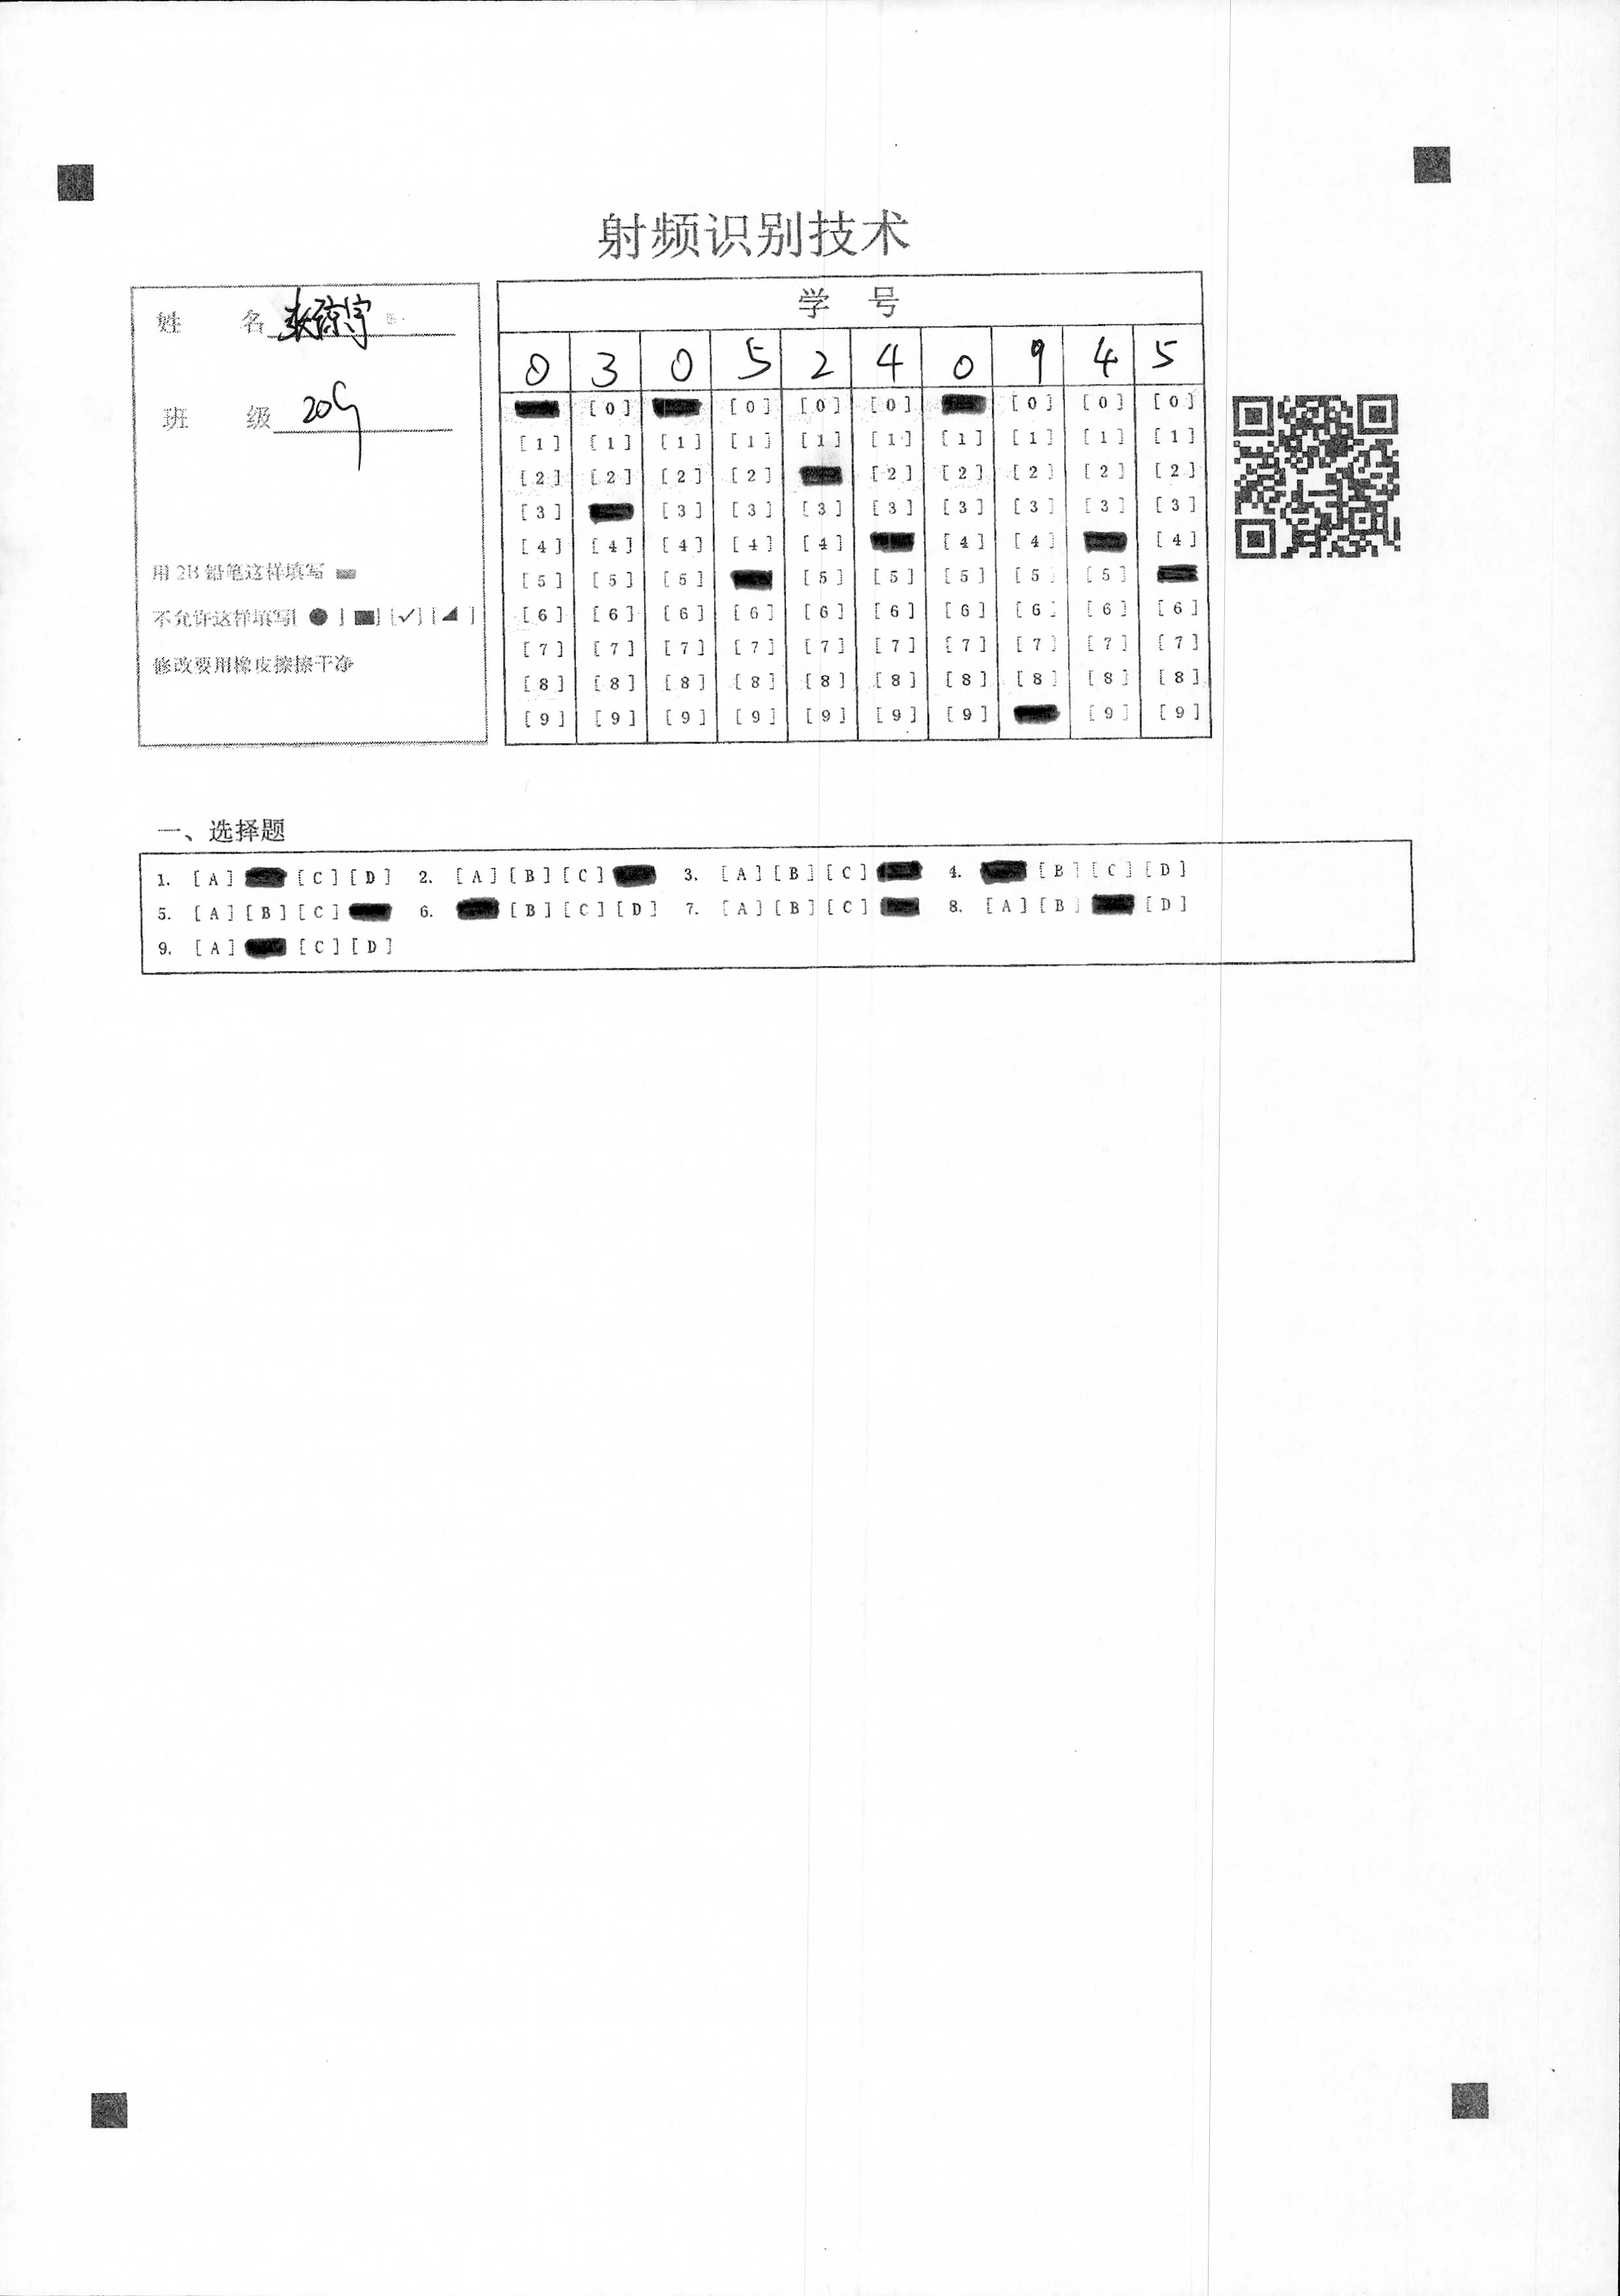 射频识别技术
姓 名 张
班 级 209
用 2B 铅笔这样填写
不允许这样填写[ ● ] [■] [✓] [◢ ]
修改要用橡皮擦擦干净
学 号
0 3 0 5 2 4 0 9 4 5
[0] [0] [0] [0] [0] [0] [0]
[1] [1] [1] [1] [1] [1] [1] [1] [1] [1]
[2] [2] [2] [2] [2] [2] [2] [2] [2]
[3] [3] [3] [3] [3] [3] [3] [3] [3]
[4] [4] [4] [4] [4] [4] [4] [4]
[5] [5] [5] [5] [5] [5] [5] [5]
[6] [6] [6] [6] [6] [6] [6] [6] [6] [6]
[7] [7] [7] [7] [7] [7] [7] [7] [7] [7]
[8] [8] [8] [8] [8] [8] [8] [8] [8] [8]
[9] [9] [9] [9] [9] [9] [9] [9] [9]
一、选择题
1. [A] [C] [D] 2. [A] [B] [C] 3. [A] [B] [C] 4. [B] [C] [D]
5. [A] [B] [C] 6. [B] [C] [D] 7. [A] [B] [C] 8. [A] [B] [D]
9. [A] [C] [D]